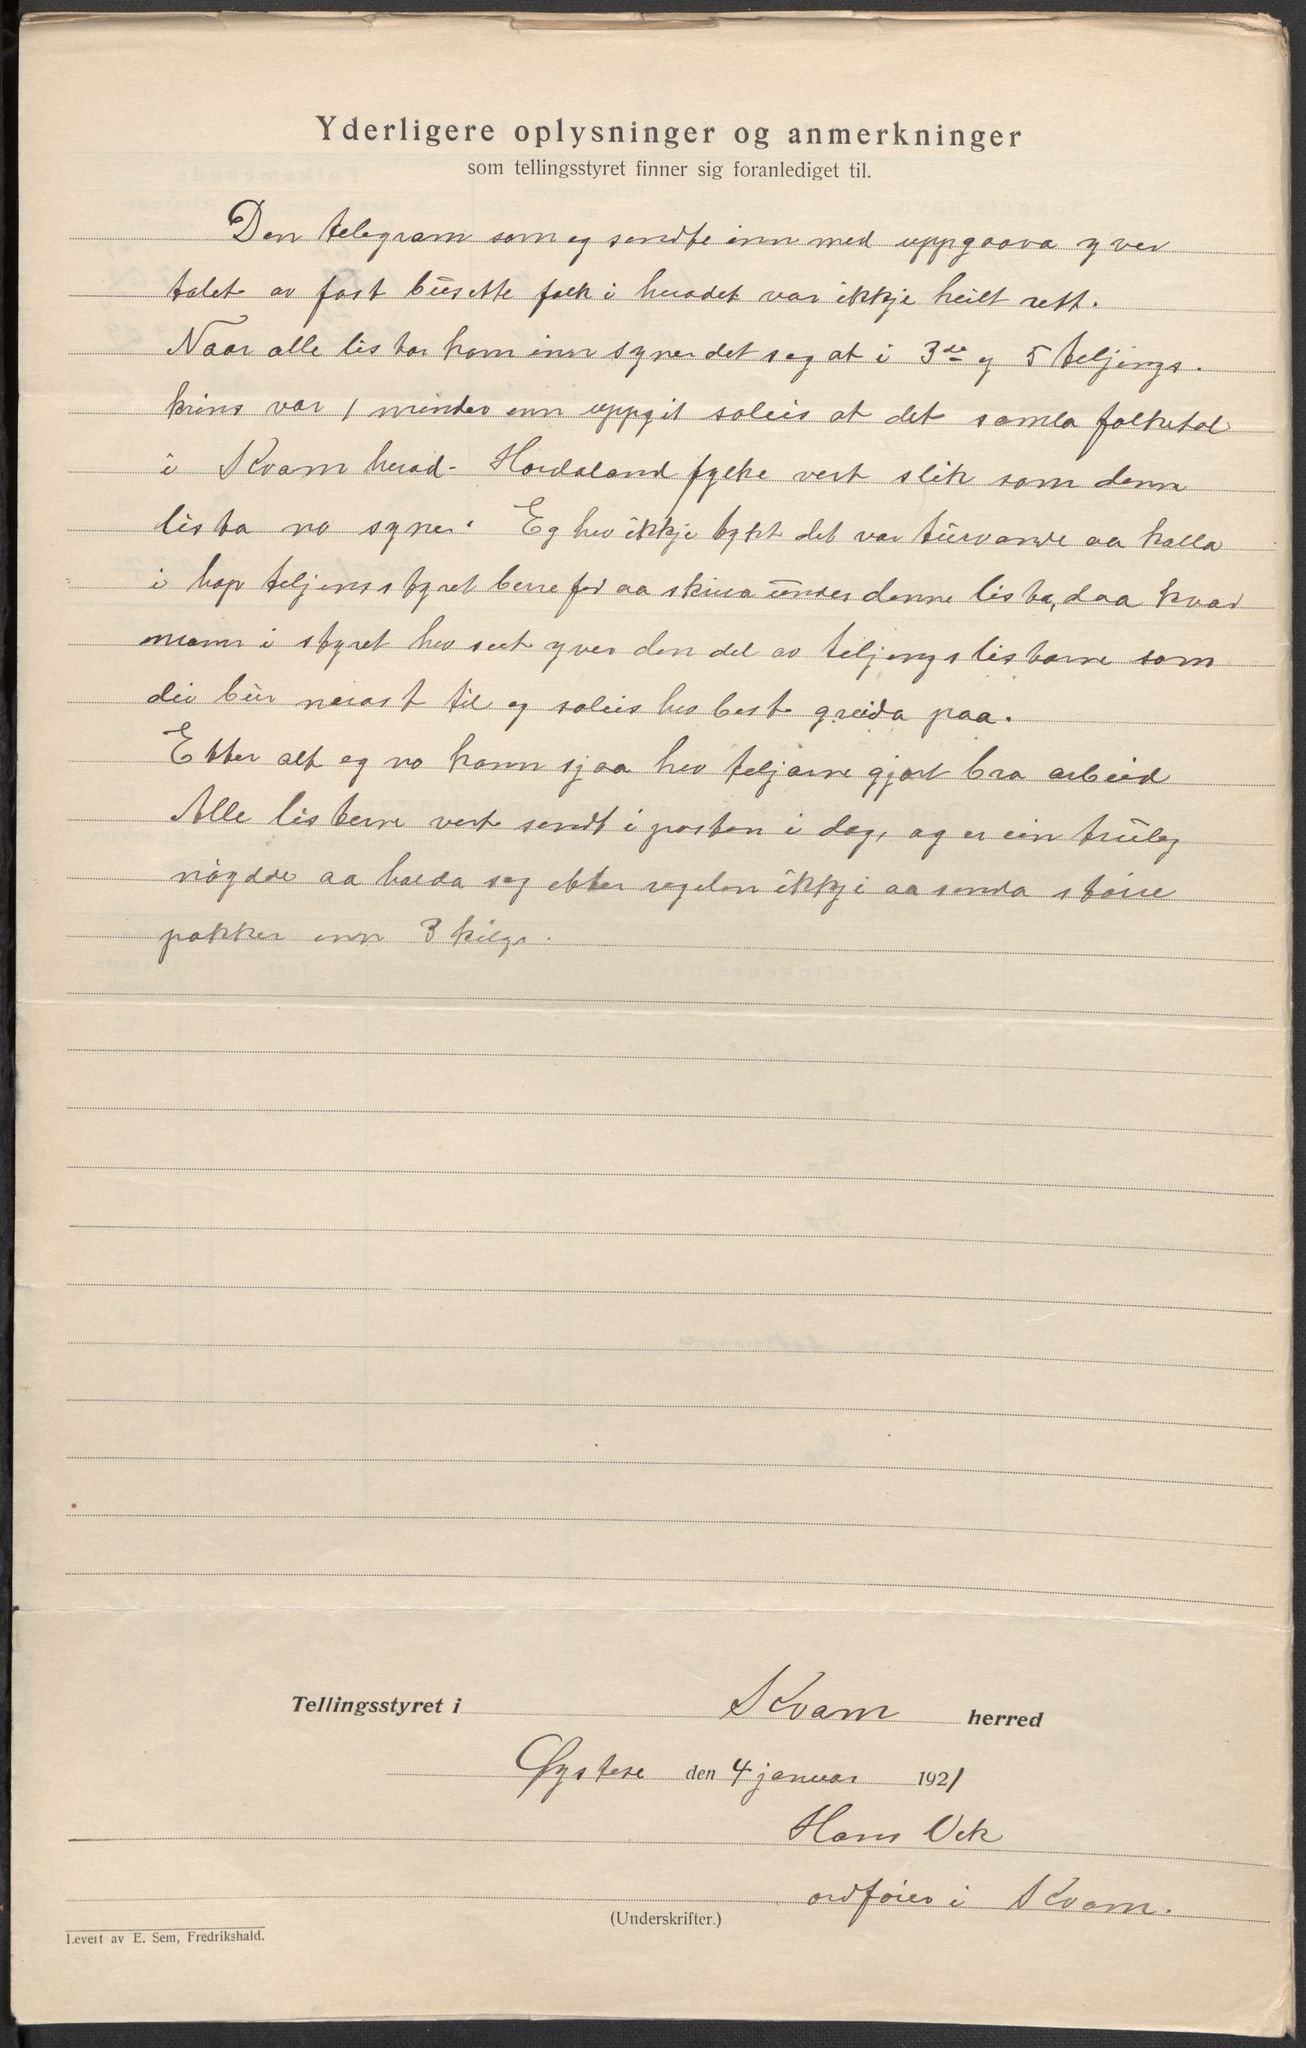 Yderligere oplysninger og anmerkninger
som tellingsstyret finner sig foranlediget til.
Den telegram som eg sendte inn med uppgaava yver
talet av fast busette folk i heradet var ikkje heilt rett.
Naar alle listor kom inn syner det seg at i 3de og 5 teljings-
krins var 1 minder enn uppgit soleis at det samla folketal
i Kvam herad - Hordaland fylke vert slik som denne
lista no syner. Eg hev ikkje tykt det var turvande aa kalla
i hop teljensstyret berre for aa skriva under denne lista, daa kvar
mann i styret hev seet yver den del av teljingslistorne som
dei bur nærast til og soleis hev best greida paa.
Etter alt eg no kann sjaa hev teljarne gjort bra arbeid
Alle listerne vert sendt i posten i dag, og er ein truleg
nøgdde aa halda seg etter regelen ikkje aa senda større
pakker enn 3 kilgr.
Tellingsstyret i Kvam herred
Øystese den 4 januar 1921
Hans Vik
ordførar i Kvam.
(Underskrifter.)
Levert av E. Sem, Fredrikshald.